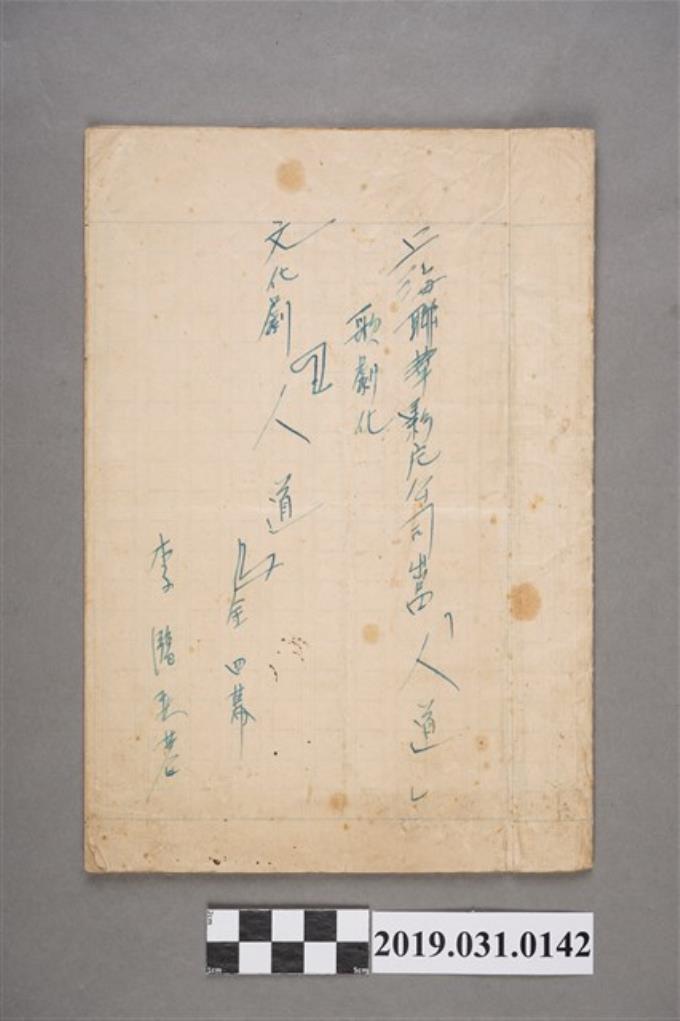 上海聯華影片公司出品「人道」
歌劇化
文化劇『人道』
全四幕
李臨秋著
2019.031.0142